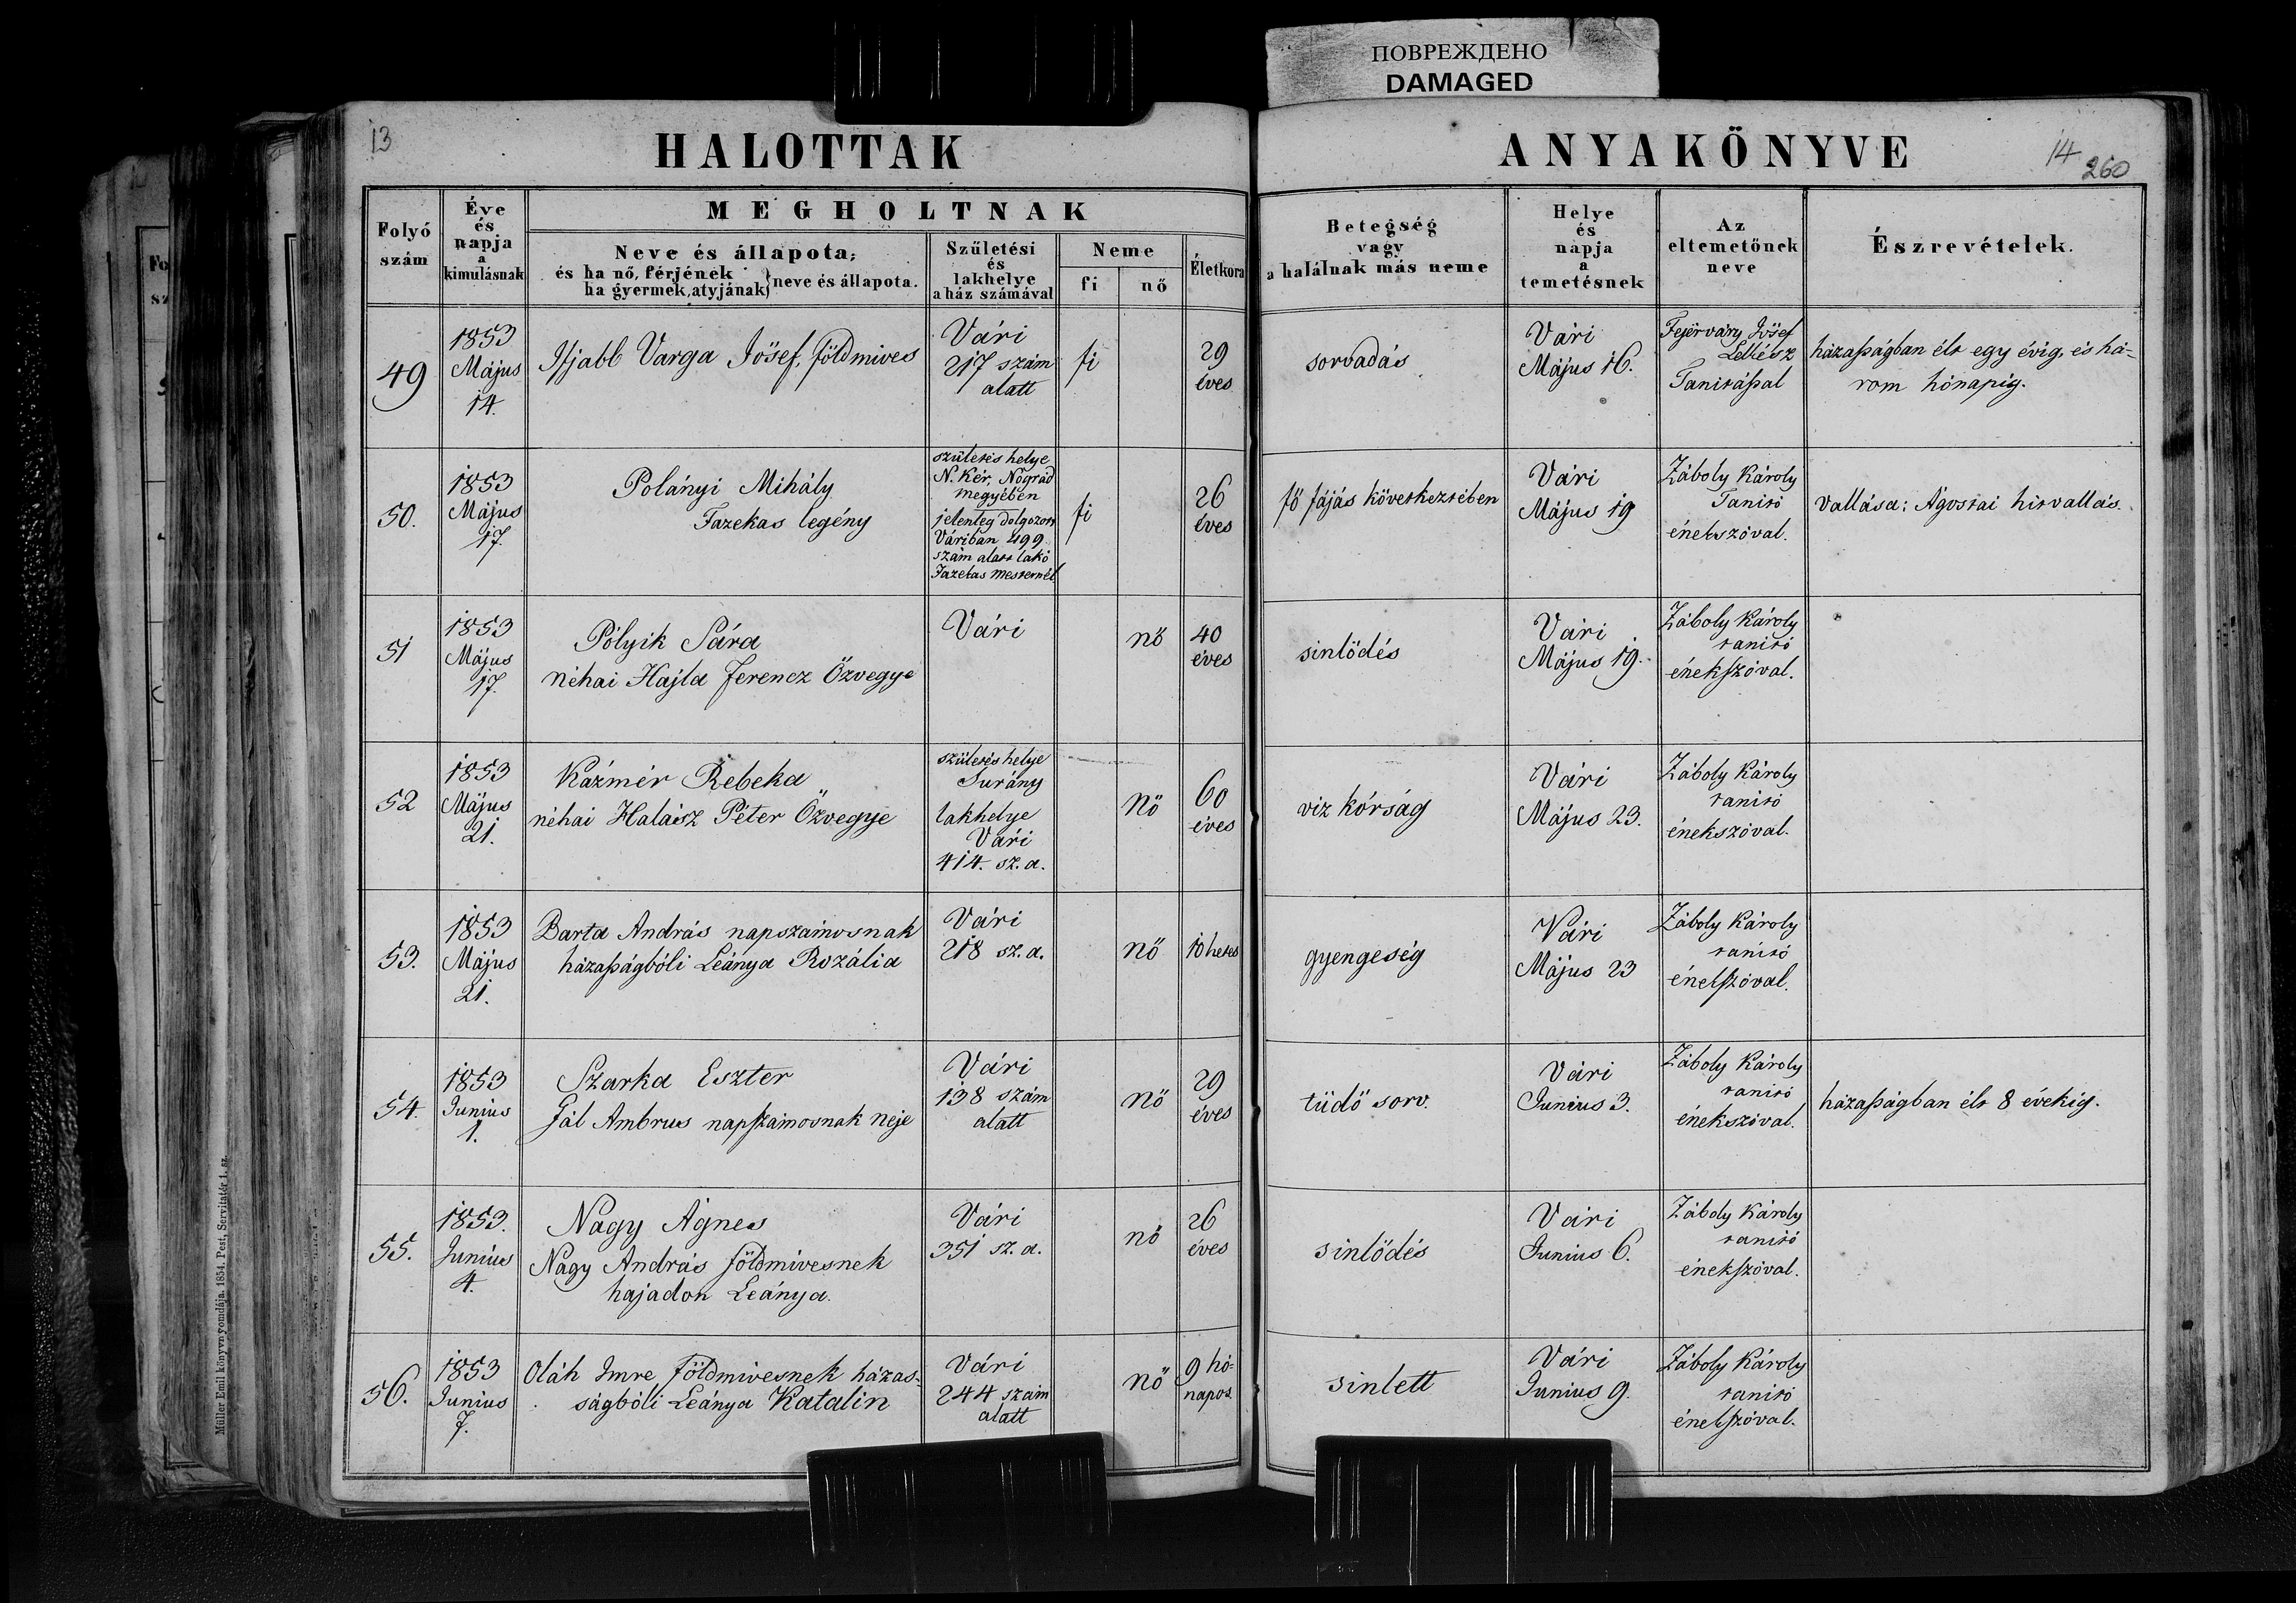 ПОВРЕЖДЕНО
DAMAGED
13
HALOTTAK
ANYAKÖNYVE
14
260
Folyó
szám
Éve
és
napja
a
kimulásnak
MEGHOLTNAK
Neve és állapota,
és ha nő, férjének
ha gyermek, atyjának} neve és állapota.
Születési
és
lakhelye
a ház számával
Neme
fi
nő
Életkora
Betegség
vagy
a halálnak más neme
Helye
és
napja
a
temetésnek
Az
eltemetőnek
neve
Észrevételek.
49
1853
Május
14.
Ifjabb Varga Jósef, földmives
Vári
217 szám
alatt
fi
29
éves
sorvadás
Vári
Május 16.
Fejérváry Jósef
Lelkész
Tanitással
házasságban élt egy évig, és há-
rom hónapig.
50.
1853
Május
17.
Polányi Mihály
Fazekas legény
születés helye
N. Kér, Nógrád
megyében
jelenleg dolgozott
Váriban 499.
szám alatt lakó
Fazekas mesternél
fi
26
éves
fő fájás következtében
Vári
Május 19
Záboly Károly
Tanitó
énekszóval.
Vallása: Ágostai hitvallás.
51
1853
Május
17.
Pólyik Sára
néhai Hajla Ferencz Özvegye
Vári
nő
40
éves
sinlődés
Vári
Május 19.
Záboly Károly
tanitó
énekszóval.
52
1853
Május
21.
Kázmér Rebeka
néhai Halász Péter Özvegye
születés helye
Surány
lakhelye
Vári
414. sz. a.
nő
60
éves
viz kórság
Vári
Május 23.
Záboly Károly
tanitó
énekszóval.
53.
1853
Május
21.
Barta András napszámosnak
házasságbóli Leánya Rozália
Vári
218 sz. a.
nő
10 hetes
gyengeség
Vári
Május 23
Záboly Károly
tanitó
énekszóval.
54.
1853
Junius
1.
Szarka Eszter
Gál Ambrus napszámosnak neje
Vári
138 szám
alatt
nő
29
éves
tüdő sorv.
Vári
Junius 3.
Záboly Károly
tanitó
énekszóval.
házasságban élt 8 évekig.
55.
1853.
Junius
4.
Nagy Ágnes
Nagy András földmivesnek
hajadon Leánya.
Vári
351 sz. a.
nő
26
éves
sinlődés
Vári
Junius 6.
Záboly Károly
tanitó
énekszóval.
56.
1853
Junius
7.
Oláh Imre Földmivesnek házas-
ságbóli Leánya Katalin
Vári
244 szám
alatt
nő
9 hó-
napos
sinlett
Vári
Junius 9.
Záboly Károly
tanitó
énekszóval.
Müller Emil könyvnyomdája. 1854. Pest, Servitatér 1. sz.